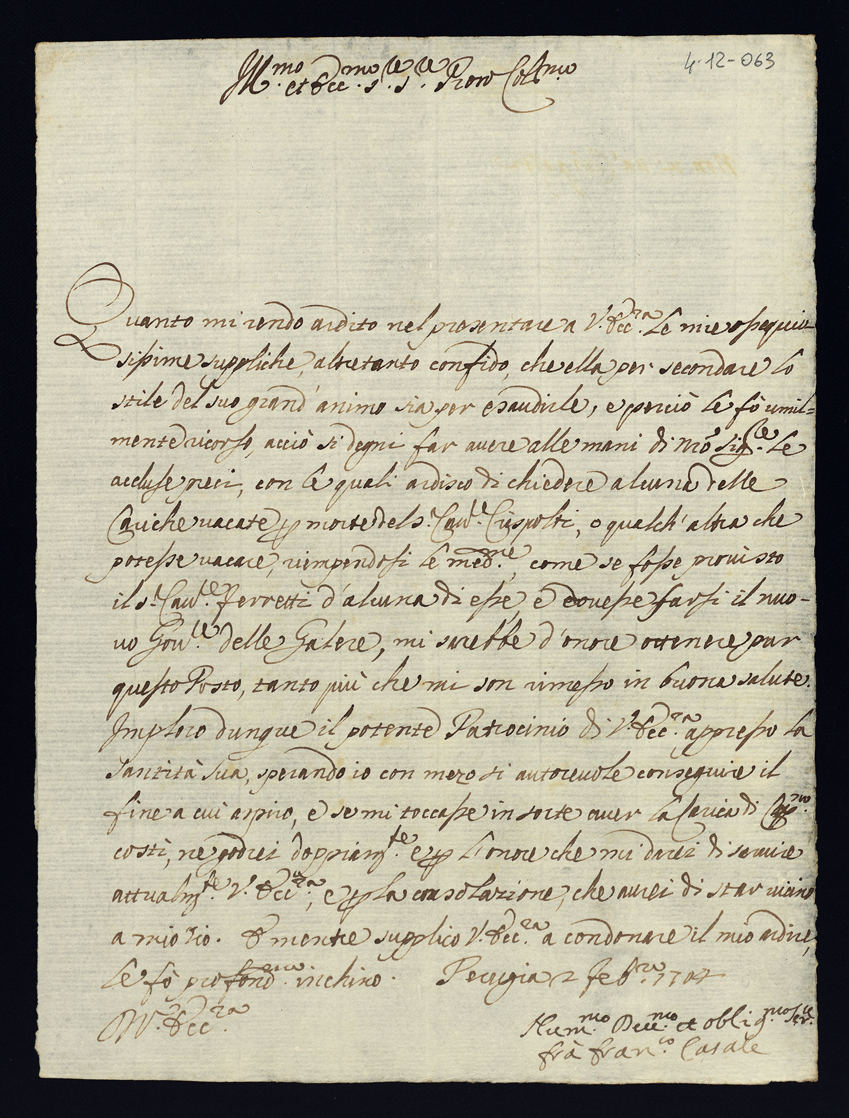 4-12-063
Ill.mo et Ecc.mo S.re S.re Pron Col.mo
Quanto mi rendo ardito nel presentare a V. Ecc.za le mie ossequio
sissime suppliche, altretanto confido, che ella per secondare lo
stile del suo grand'animo sia per esaudirle, e perciò le fò umil=
mente ricorso, acciò si degni far avere alle mani di Mo.s Sig.re le
accluse preci, con le quali ardisco di chiedere alcuna delle
Cariche vacate p morte del S. Cav.re Crispolti, o qualch'altra che
potesse vacare, riempendosi le med.me, come se fosse provisto
il S.r Cav.re Ferretti d'alcuna di esse, e dovesse farsi il nuo-
vo Gov.re delle Galere, mi sarebbe d'onore ottenere pur
questo Posto, tanto più che mi son rimesso in buona salute.
Imploro dunque il potente Patrocinio di V. Ecc.za appresso la
Santità Sua, sperando io con mezo sì autorevole conseguire il
fine a cui aspiro, e se mi toccasse in sorte aver la Carica di
costì, ne goderei doppiam.te e p l'onore che mi darei di servire
attualm.te V. Ecc.za, e p la consolazione, che averei di star vicino
a mio Zio. E mentre supplico V. Ecc.za a condonare il mio ardire,
le fò profond.mo inchino. Perugia 2 Feb.ro 1704
D V. Ecc.za
Hum.mo Dev.mo et oblig.mo Ser.re
frà Fran.co Casale